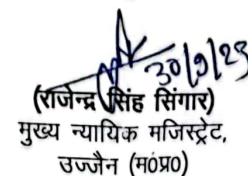 30/9/23
(राजेन्द्र सिंह सिंगार)
मुख्य न्यायिक मजिस्ट्रेट,
उज्जैन (म0प्र0)